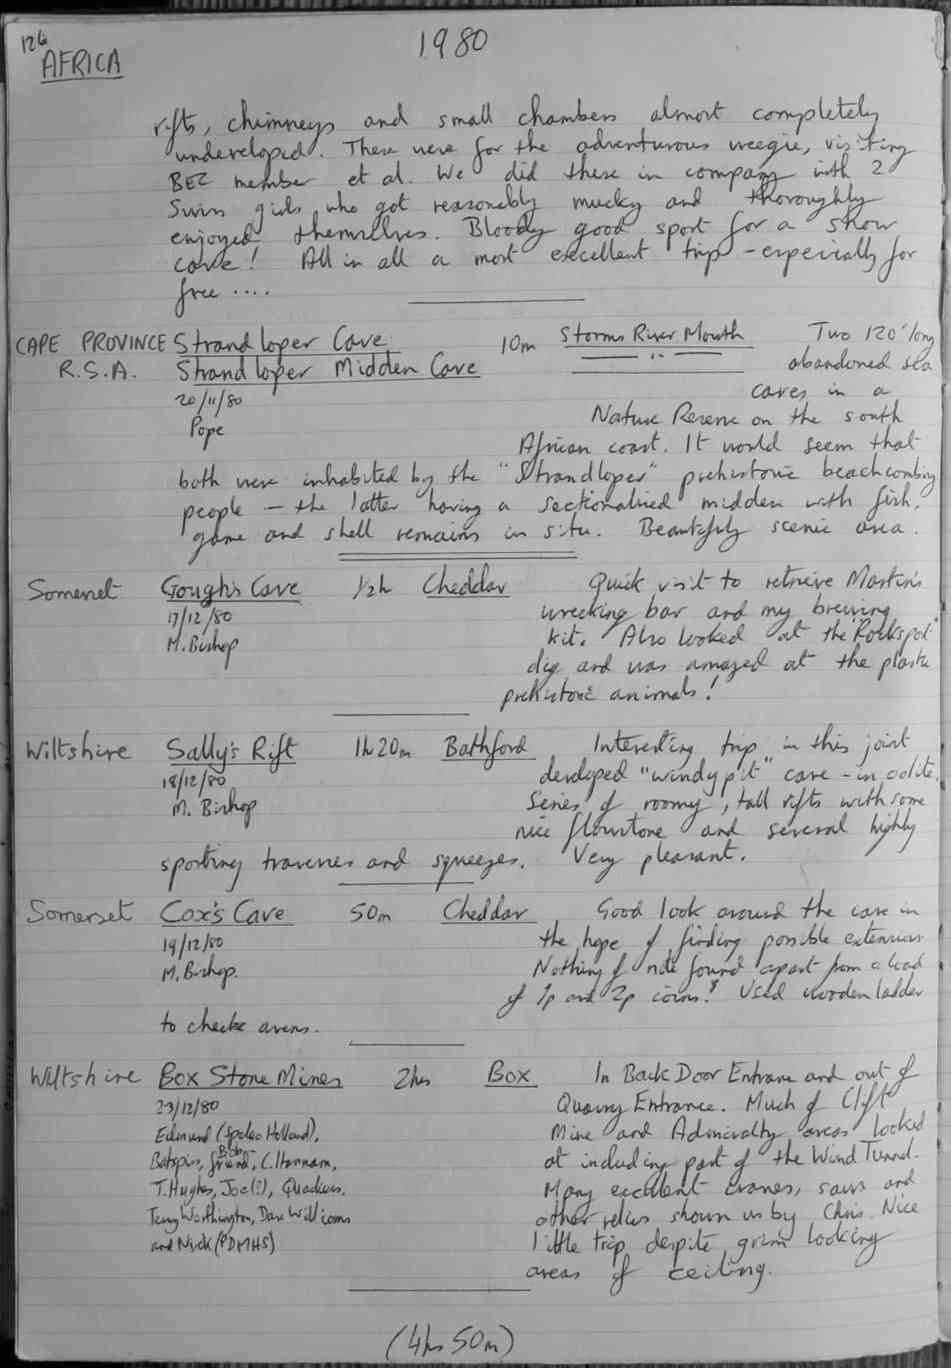 126
AFRICA
1980
rifts, chimneys and small chambers almost completely
undeveloped. These were for the adventurous weegie, visiting
BEC member et al. We did these in company with 2
Swiss girls who got reasonably mucky and thoroughly
enjoyed themselves. Bloody good sport for a show
cave! All in all a most excellent trip - especially for
free ....
CAPE PROVINCE Strandloper Cave 10m Storms River Mouth Two 120' long
R.S.A. Strandloper Midden Cave — " — abandoned sea
20/11/80 caves in a
Pope Nature Reserve on the south
African coast. It would seem that
both were inhabited by the "Strandloper" prehistoric beachcombing
people - the latter having a sectionalised midden with fish,
game and shell remains in situ. Beautifully scenic area.
Somerset Gough's Cave ½h Cheddar Quick visit to retrieve Martin's
17/12/80 wrecking bar and my brewing
M. Bishop kit. Also looked at the "Rockspot"
dig and was amazed at the plastic
prehistoric animals!
Wiltshire Sally's Rift 1h 20m Bathford Interesting trip in this joint
18/12/80 developed "windypit" cave - in oolite.
M. Bishop Series of roomy, tall rifts with some
nice flowstone and several highly
sporting traverses and squeezes. Very pleasant.
Somerset Cox's Cave 50m Cheddar Good look around the cave in
19/12/80 the hope of finding possible extensions
M. Bishop. Nothing of note found apart from a load
of 1p and 2p coins! Used wooden ladder
to check avens.
Wiltshire Box Stone Mines 2hrs Box In Back Door Entrance and out of
23/12/80 Quarry Entrance. Much of Clift
Edmund (Speleo Holland), Mine and Admiralty areas looked
Batspiss, Bob friend, C. Hannam, at including part of the Wind Tunnel.
T. Hughes, Joe(?), Quackers, Many excellent cranes, saws and
Tony Worthington, Dave Williams other relics shown us by Chris. Nice
and Nick (PDMHS) little trip despite grim looking
areas of ceiling.
(4hrs 50m)